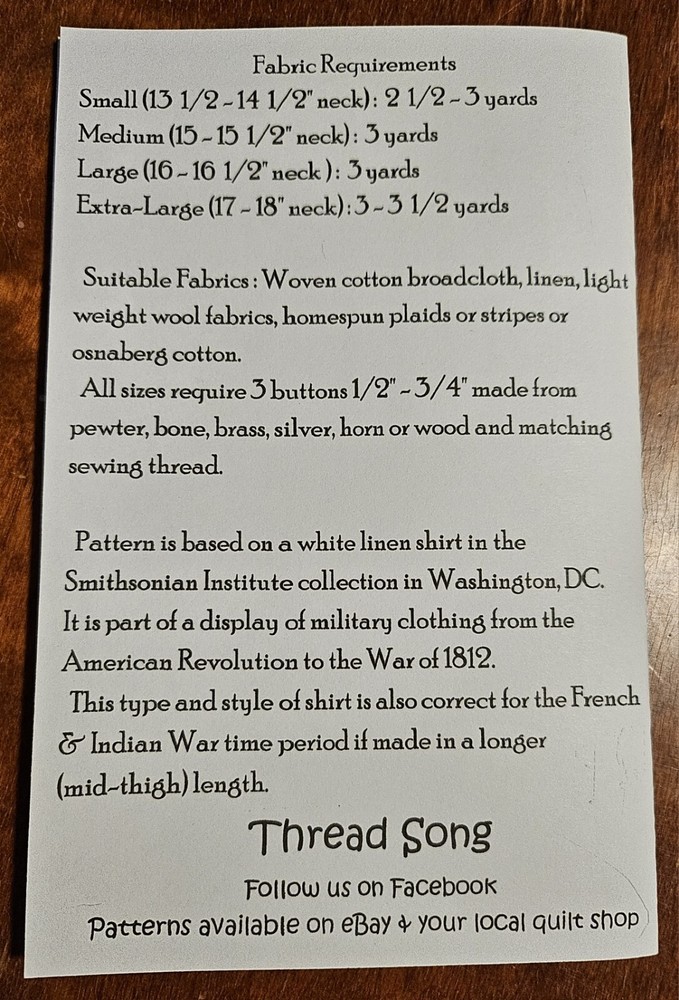 Fabric Requirements
Small (13 1/2 ~ 14 1/2" neck): 2 1/2 ~ 3 yards
Medium (15 ~ 15 1/2" neck): 3 yards
Large (16 ~ 16 1/2" neck ): 3 yards
Extra~Large (17 ~ 18" neck): 3 ~ 3 1/2 yards
Suitable Fabrics: Woven cotton broadcloth, linen, light
weight wool fabrics, homespun plaids or stripes or
osnaberg cotton.
All sizes require 3 buttons 1/2" ~ 3/4" made from
pewter, bone, brass, silver, horn or wood and matching
sewing thread.
Pattern is based on a white linen shirt in the
Smithsonian Institute collection in Washington, DC.
It is part of a display of military clothing from the
American Revolution to the War of 1812.
This type and style of shirt is also correct for the French
& Indian War time period if made in a longer
(mid~thigh) length.
Thread Song
Follow us on Facebook
Patterns available on eBay & your local quilt shop